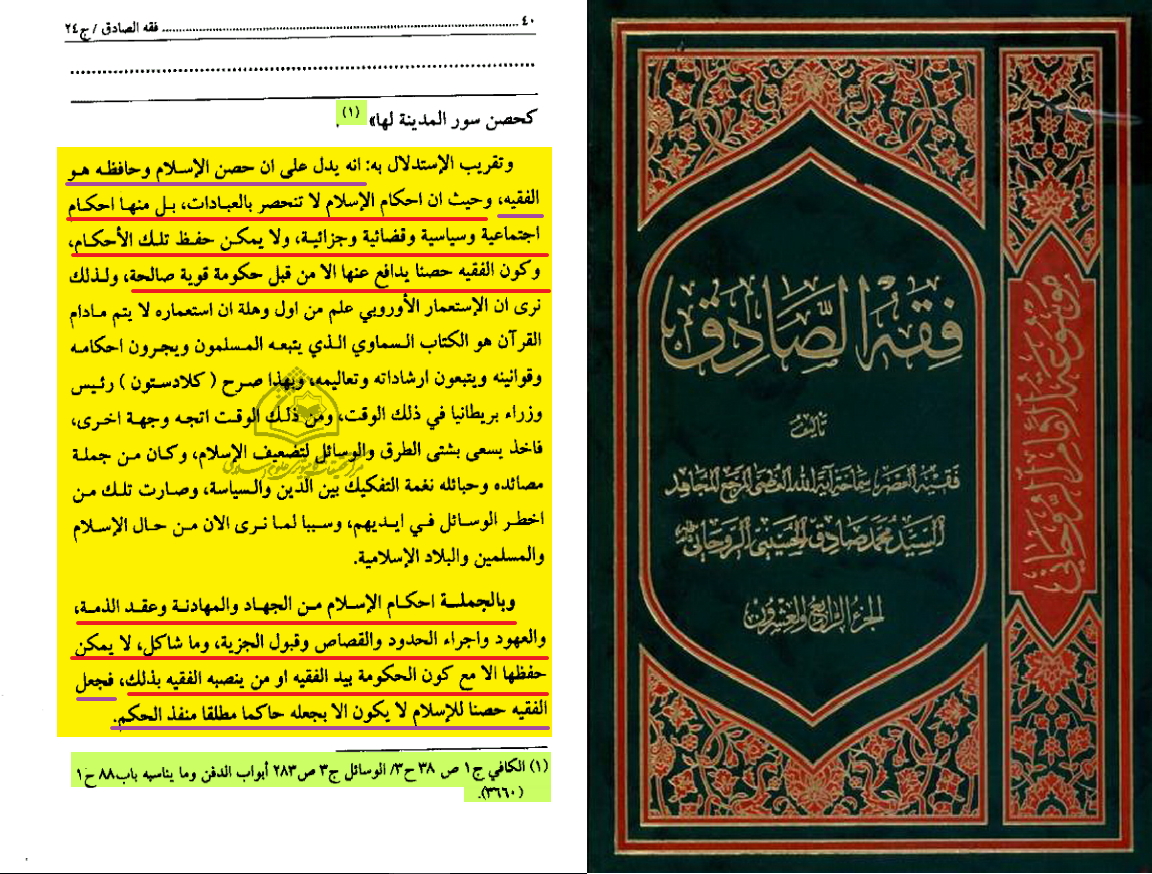 ٤٠ ........................................................................ فقه الصادق / ج٢٤
كحصن سور المدينة لها» (١).
وتقريب الإستدلال به: انه يدل على ان حصن الإسلام وحافظه هو
الفقيه، وحيث ان احكام الإسلام لا تنحصر بالعبادات، بل منها احكام
اجتماعية وسياسية وقضائية وجزائية، ولا يمكن حفظ تلك الأحكام،
وكون الفقيه حصنا يدافع عنها الا من قبل حكومة قوية صالحة، ولذلك
نرى ان الإستعمار الأوروبي علم من اول وهلة ان استعماره لا يتم مادام
القرآن هو الكتاب السماوي الذي يتبعه المسلمون ويجرون احكامه
وقوانينه ويتبعون ارشاداته وتعاليمه، وبهذا صرح ( كلادستون ) رئيس
وزراء بريطانيا في ذلك الوقت، ومن ذلك الوقت اتجه وجهة اخرى،
فاخذ يسعى بشتى الطرق والوسائل لتضعيف الإسلام، وكان من جملة
مصائده وحبائله نغمة التفكيك بين الدين والسياسة، وصارت تلك من
اخطر الوسائل في ايديهم، وسببا لما نرى الان من حال الإسلام
والمسلمين والبلاد الإسلامية.
وبالجملة احكام الإسلام من الجهاد والمهادنة وعقد الذمة،
والعهود واجراء الحدود والقصاص وقبول الجزية، وما شاكل، لا يمكن
حفظها الا مع كون الحكومة بيد الفقيه او من ينصبه الفقيه بذلك، فجعل
الفقيه حصنا للإسلام لا يكون الا بجعله حاكما مطلقا منفذ الحكم.
(١) الكافي ج١ ص ٣٨ ح٣/ الوسائل ج٣ ص٢٨٣ أبواب الدفن وما يناسبه باب٨٨ ح١
(٣٦٦٠).
فقه الصادق
تأليف
فقيه العصر سماحة آية الله العظمى المرجع المجاهد
السيد محمد صادق الحسيني الروحاني
الجزء الرابع والعشرون
موسوعة الإمام الروحاني